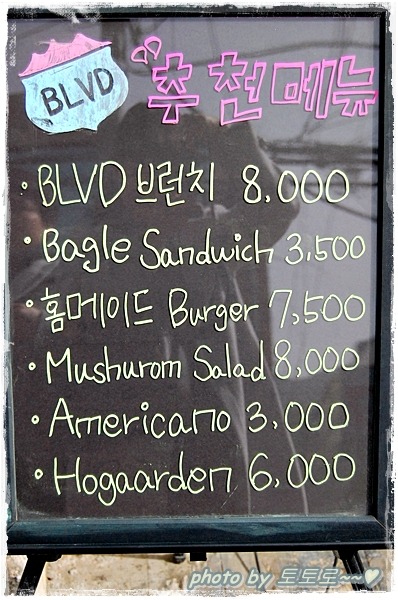 BLVD
"추천메뉴
· BLVD 브런치 8,000
· Bagle Sandwich 3,500
· 홈메이드 Burger 7,500
· Mushurom Salad 8,000
· Americano 3,000
· Hogaarden 6,000
photo by 토토도~~♥